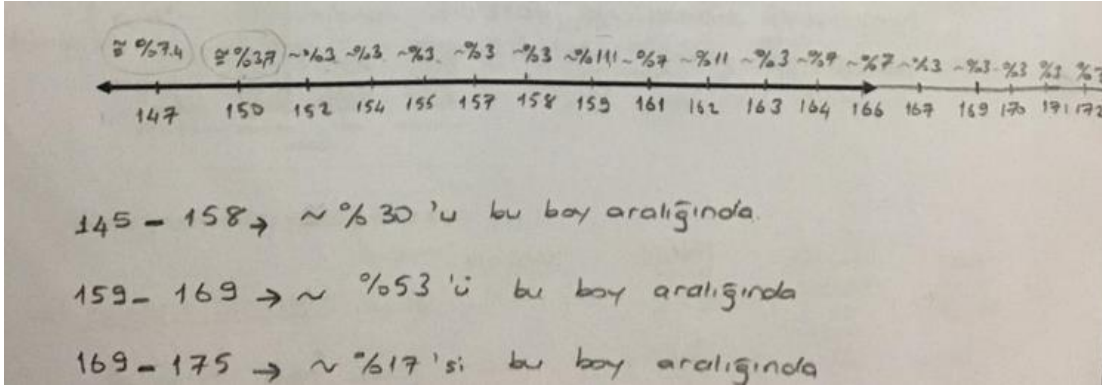 ≅ %7.4 ≅ %3,7 ~%3 ~%3 ~%3 ~%3 ~%3 ~%11,1 ~%7 ~%11 ~%3 ~%7 ~%7 ~%3 ~%3 %3 %3
147 150 152 154 155 157 158 159 161 162 163 164 166 167 169 170 171 172
145 - 158 → ~ %30 'u bu boy aralığında.
159 - 169 → ~ %53 'ü bu boy aralığında
169 - 175 → ~ %17 'si bu boy aralığında